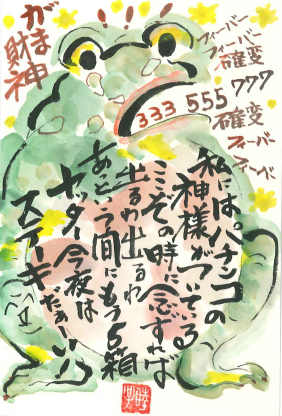 がま
財神
フィーバー
フィーバー
確変
777
333 555
確変
フィーバー
フィーバー
私には。パチンコの
神様がついている
ここぞの時に念ずれば
出るわ出るわ
あっという間にもう5箱
ヤッター今夜は
ステーキだぁーい!